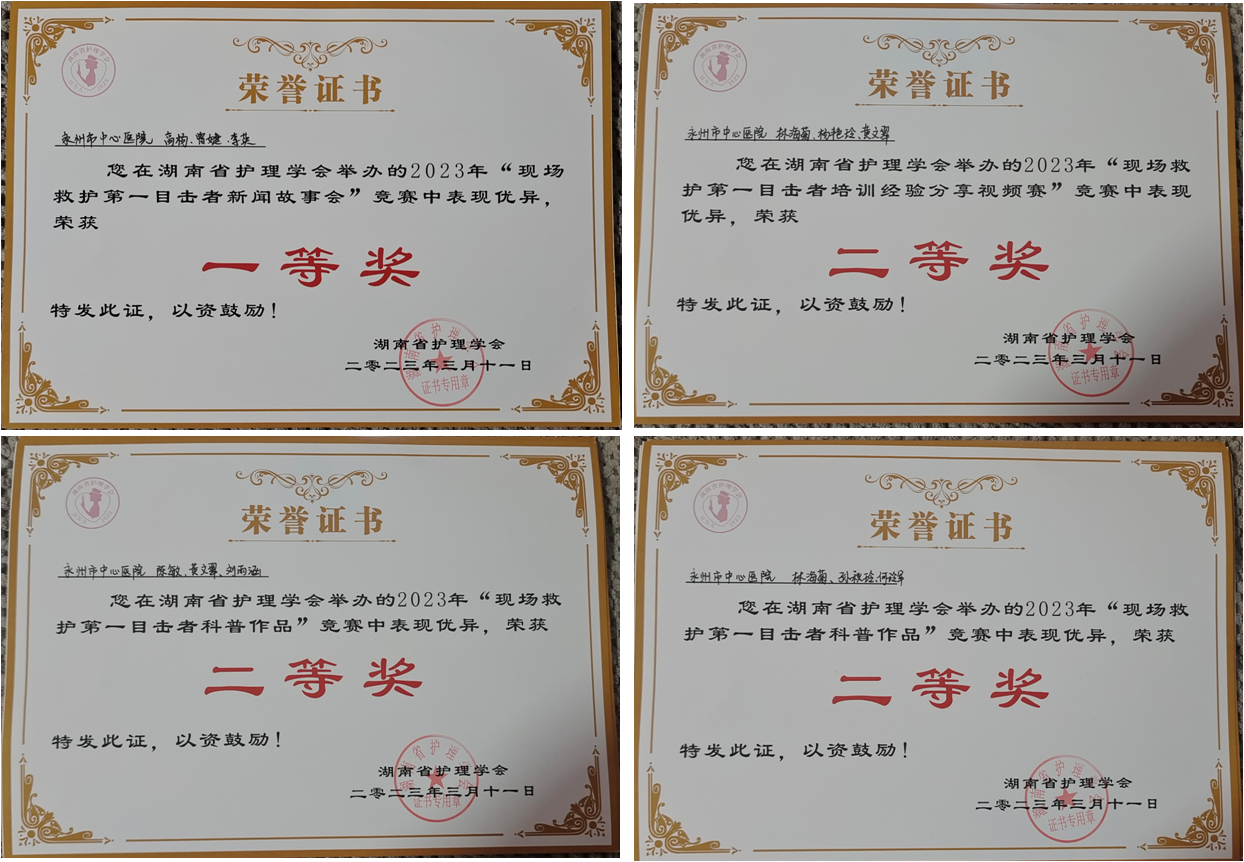 湖南省护理学会
荣誉证书
永州市中心医院 高杨、曾婕、李英
您在湖南省护理学会举办的2023年“现场
救护第一目击者新闻故事会”竞赛中表现优异，
荣获
一等奖
特发此证，以资鼓励！
湖南省护理学会
二零二三年三月十一日
证书专用章
湖南省护理学会
荣誉证书
永州市中心医院 林海菊、杨艳玲、黄文翠
您在湖南省护理学会举办的2023年“现场救
护第一目击者培训经验分享视频赛”竞赛中表现
优异，荣获
二等奖
特发此证，以资鼓励！
湖南省护理学会
二零二三年三月十一日
证书专用章
湖南省护理学会
荣誉证书
永州市中心医院 陈敏、黄文翠、刘雨涵
您在湖南省护理学会举办的2023年“现场救
护第一目击者科普作品”竞赛中表现优异，荣获
二等奖
特发此证，以资鼓励！
湖南省护理学会
二零二三年三月十一日
证书专用章
湖南省护理学会
荣誉证书
永州市中心医院 林海菊、
您在湖南省护理学会举办的2023年“现场救
护第一目击者科普作品”竞赛中表现优异，荣获
二等奖
特发此证，以资鼓励！
湖南省护理学会
二零二三年三月十一日
证书专用章